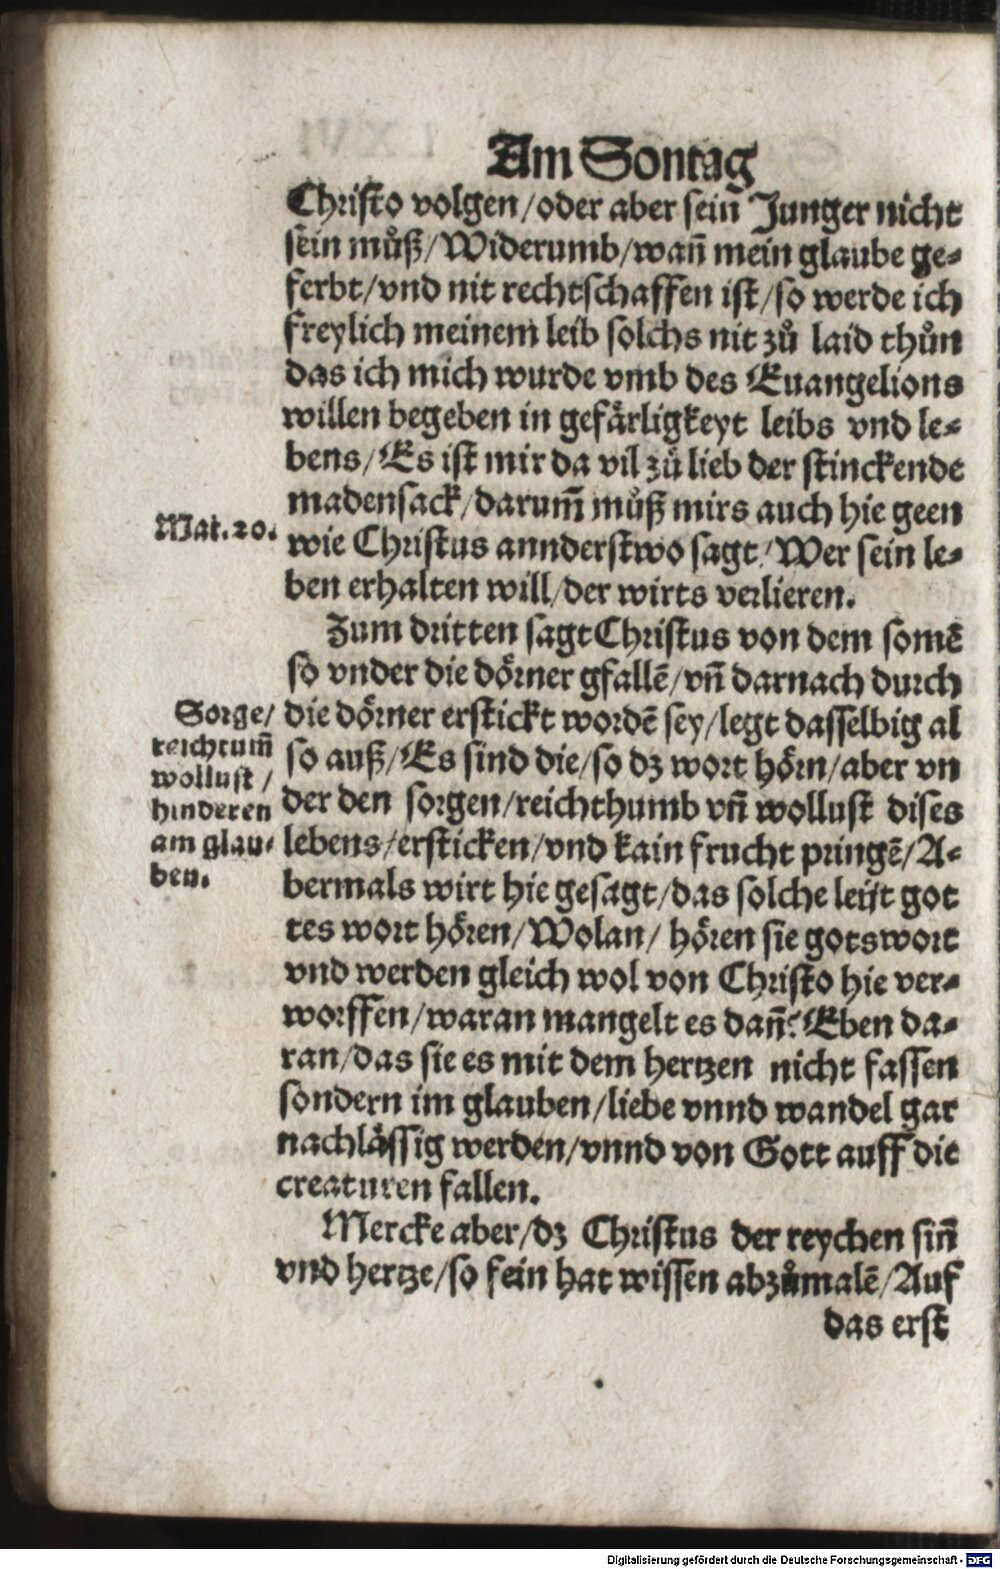 Am Sontag
Christo volgen/oder aber sein Junger nicht
sein můß/Widerumb/wañ mein glaube ge⸗
ferbt/vnd nit rechtschaffen ist/so werde ich
freylich meinem leib solchs nit zů laid thůn
das ich mich wurde vmb des Euangelions
willen begeben in gefärligkeyt leibs vnd le⸗
bens/Es ist mir da vil zů lieb der stinckende
madensack/darum̃ můß mirs auch hie geen
Mat.20.
wie Christus annderstwo sagt/Wer sein le⸗
ben erhalten will/der wirts verlieren.
Zum dritten sagt Christus von dem somē
so vnder die dörner gfallē/vñ darnach durch
Sorge/
reichtum̃
wollust/
hinderen
am glau⸗
ben.
die dörner erstickt wordē sey/legt dasselbig al
so auß/Es sind die/so dz wort hörn/aber vn
der den sorgen/reichthumb vñ wollust dises
lebens/ersticken/vnd kain frucht pringē/A⸗
bermals wirt hie gesagt/das solche leüt got
tes wort hören/Wolan/ hören sie gotswort
vnd werden gleich wol von Christo hie ver⸗
worffen/waran mangelt es dañ? Eben da⸗
ran/das sie es mit dem hertzen nicht fassen
sondern im glauben/liebe vnnd wandel gar
nachlässig werden/vnnd von Gott auff die
creaturen fallen.
Mercke aber/dz Christus der reychen siñ
vnd hertze/so fein hat wissen abzůmalē/Auf
das erst
Digitalisierung gefördert durch die Deutsche Forschungsgemeinschaft - DFG